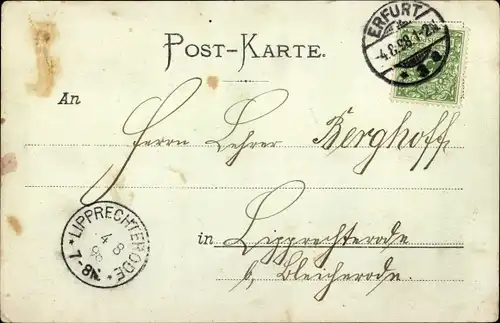 ERFURT
4.8.98.1-2N
* 3 a
POST-KARTE.
An
Herrn Lehrer Berghoff
* LIPPRECHTERODE *
4 8
98
7-8N
in Lipprechterode
b, Bleicherode.